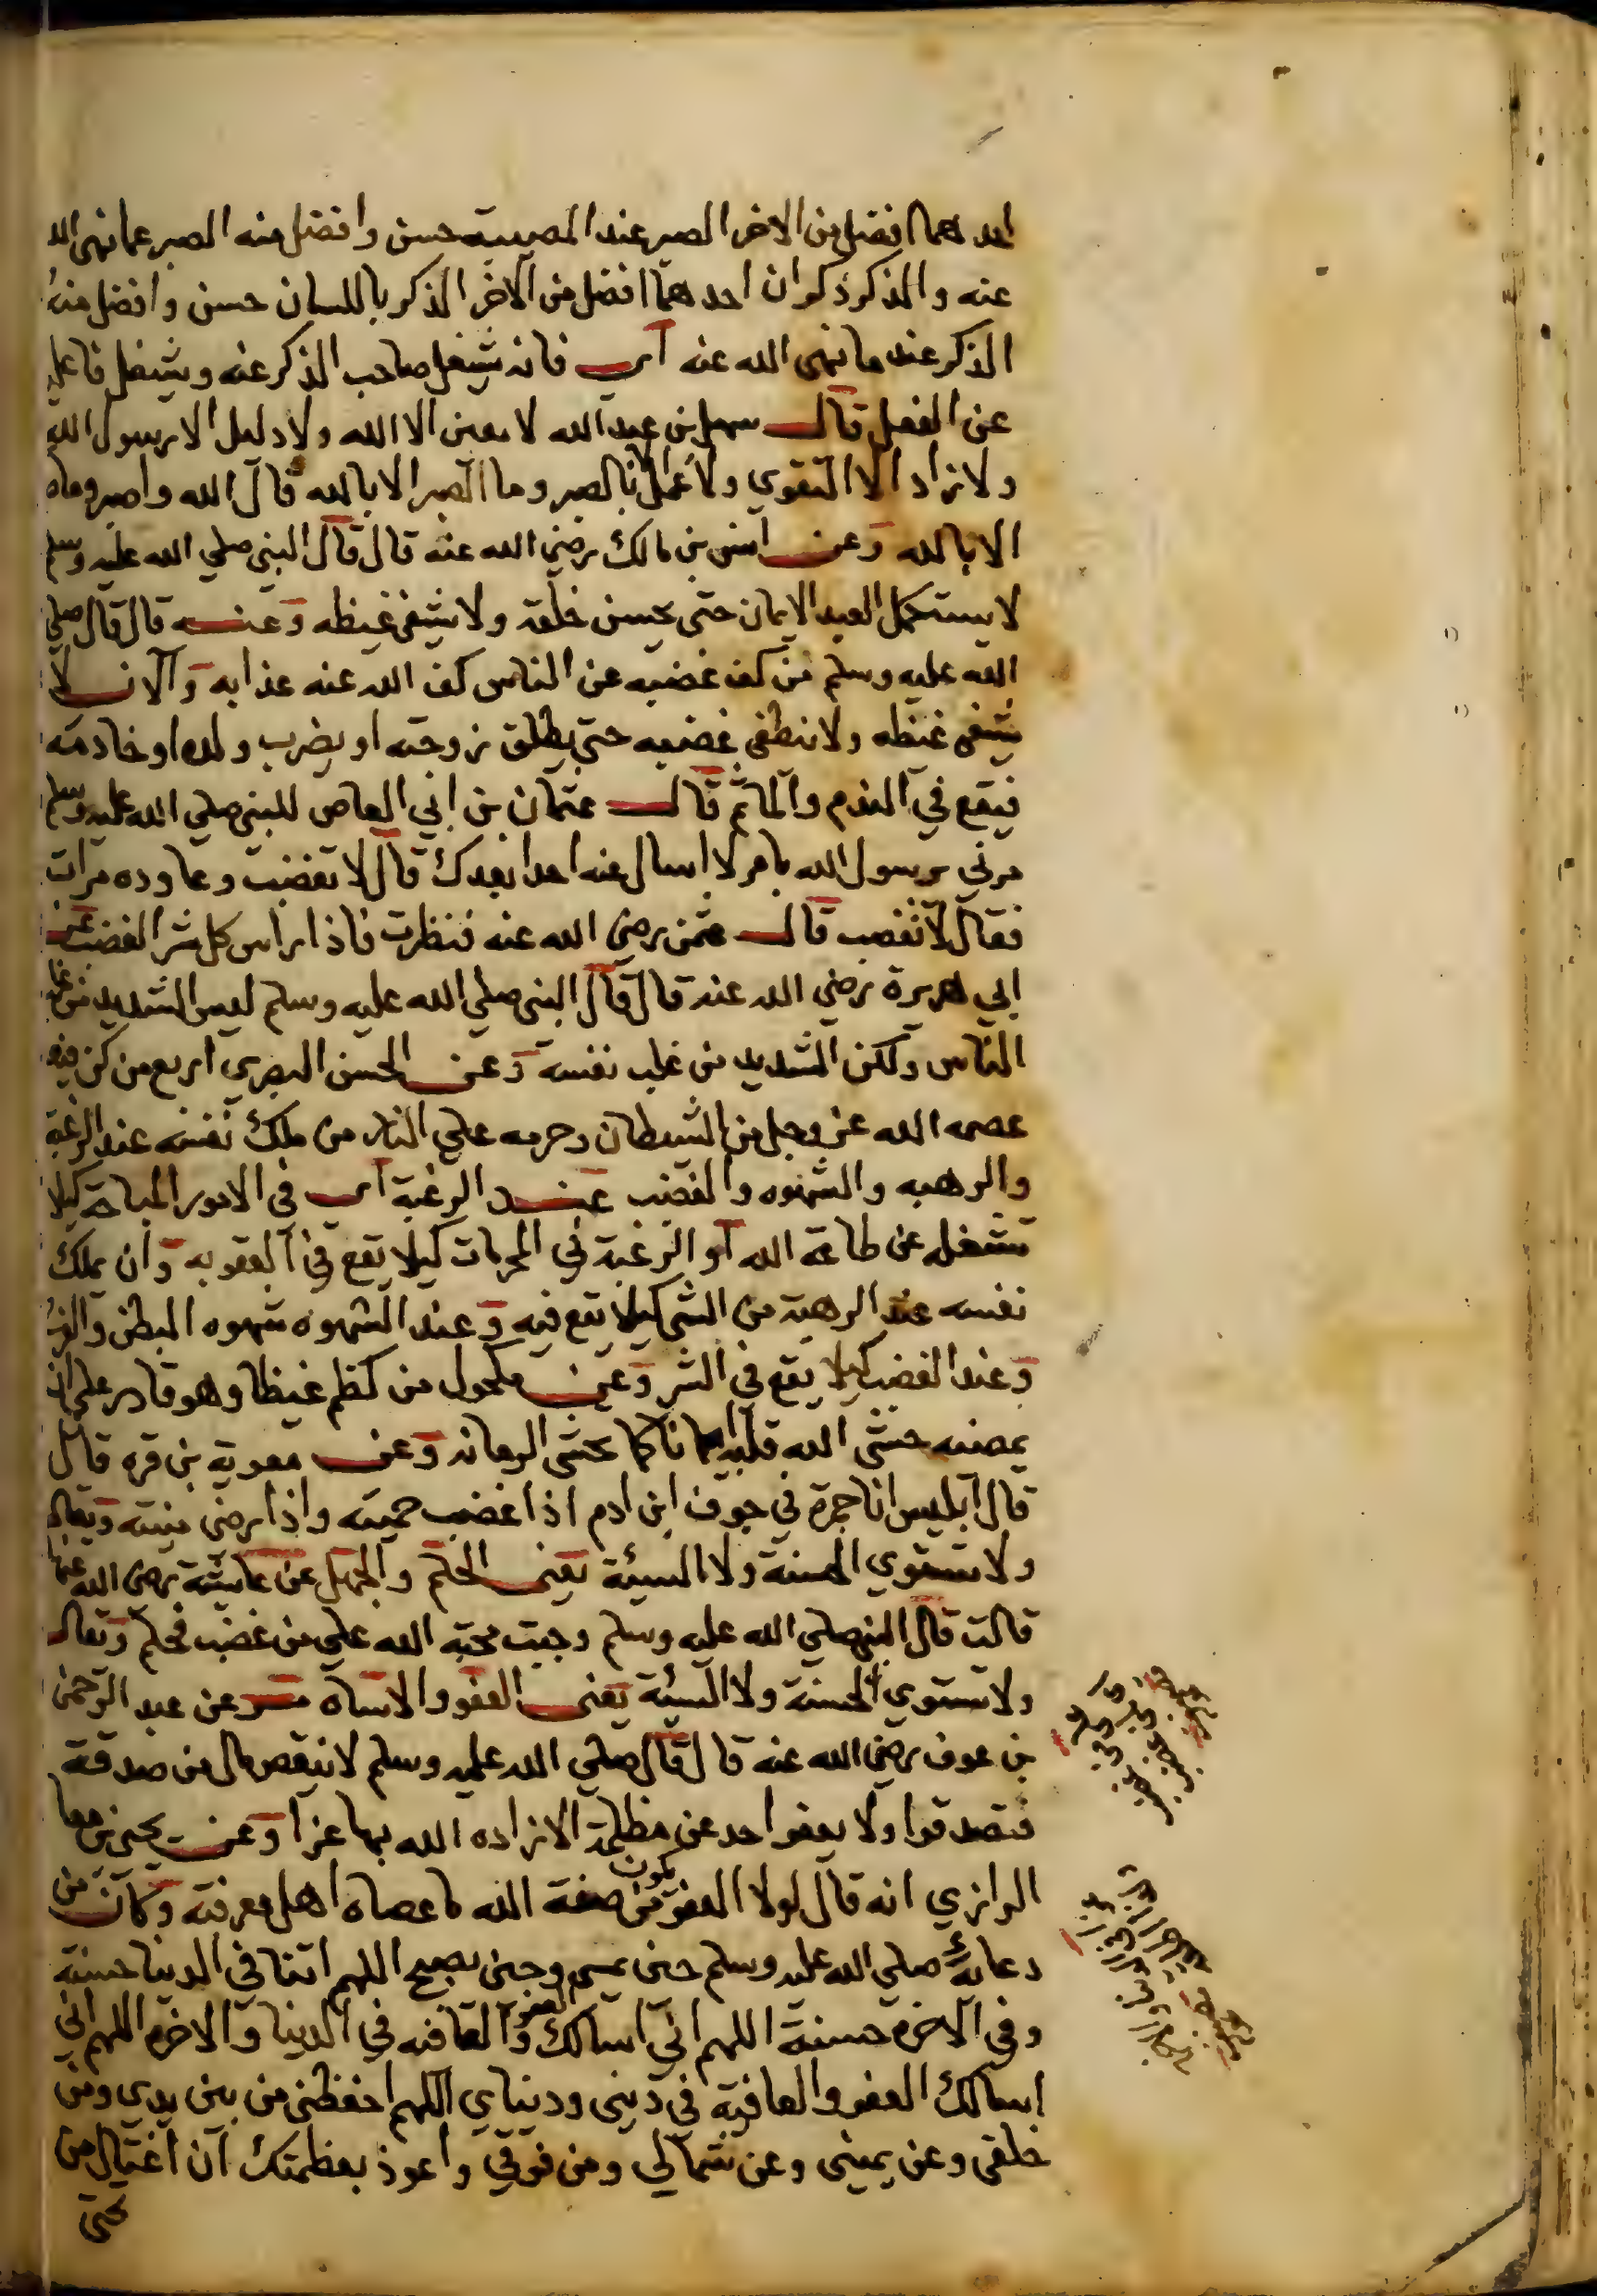 احدهما افضل من الاخر الصبر عند المصيبة حسن وافضل منه الصبر عما نهى الله
عنه والذكر ذكران احدهما افضل من الآخر الذكر باللسان حسن وافضل منه
الذكر عند ما نهى الله عنه اى فانه يشغل صاحب الذكر عنه ويشغل فاعله
عن الفعل قال سهل بن عبد الله لا معين الا الله ولا دليل الا رسول الله
ولا زاد الا التقوي ولا عمل الا بالصبر وما الصبر الا بالله قال الله واصبر وما
الا بالله وعن انس بن مالك رضي الله عنه قال قال النبي صلي الله عليه وسلم
لا يستكمل العبد الايمان حتى يحسن خلقه ولا يشفي غيظه وعنه قال قال صلي
الله عليه وسلم من كف غضبه عن الناس كف الله عنه عذابه والآن لا
يشفى غيظه ولا ينطفي غضبه حتى يطلق زوجته او يضرب ولده او خادمه
فيقع في الندم والمآثم قال عثمان بن ابي العاص للنبي صلي الله عليه وسلم
مرني يرسول الله بامر لا اسال عنه احدا بعدك قال لا تغضب وعاوده مرات
فقال لا تغضب قال عثمن رضي الله عنه فنظرت فاذا راس كل شر الغضب عن
ابي هريرة رضي الله عنه قال قال النبي صلي الله عليه وسلم ليس الشديد من غلب
الناس ولكن الشديد من غلب نفسه وعن الحسن البصري اربع من كن فيه
عصمه الله عز وجل من الشيطان وحرمه علي النار من ملك نفسه عند الرغبة
والرهبه والشهوه والغضب عند الرغبة اى في الامور المباحة كيلا
تشغله عن طاعة الله او الرغبة في المحرمات كيلا يقع في العقوبه وان يملك
نفسه عند الرهبة من الشي كيلا يقع فيه وعند الشهوه شهوه البطن والفرج
وعند الغضب كيلا يقع في الشر وعن مكحول من كظم غيظا وهو قادر على ان
يمضيه حشى الله قلبه ايمانا كما تحشى الرمانه وعن معوية بن قره قال
قال ابليس انا جمرة في جوف ابن ادم اذا غضب حميته واذا رضى منيته وتعالى
ولا تستوي الحسنة ولا السيئة يعنى الحلم والجهل عن عايشة رضي الله عنها
قالت قال النبي صلي الله عليه وسلم وجبت محبة الله علي من غضب فحلم وتعالى
ولا تستوي الحسنة ولا السيئة يعنى العفو والاساه عن عبد الرحمن
بن عوف رضي الله عنه قال قال صلي الله عليه وسلم لا ينقص مال من صدقة
فتصدقوا ولا يعفو احد عن مظلمة الا زاده الله بها عزا وعن يحيى بن معاذ
الرازي انه قال لولا العفو يكون من صفة الله ما عصاه اهل معرفته وكان من
دعائه صلي الله عليه وسلم حين يمسي وحين يصبح اللهم اتنا في الدنيا حسنة
وفي الآخرة حسنة اللهم اني اسالك العفو والعافيه في الدنيا والاخرة اللهم اني
اسالك العفو والعافية في ديني ودنياي اللهم احفظني من بين يدي ومن
خلفي وعن يميني وعن شمالي ومن فوقي واعوذ بعظمتك ان اغتال من
تحتى